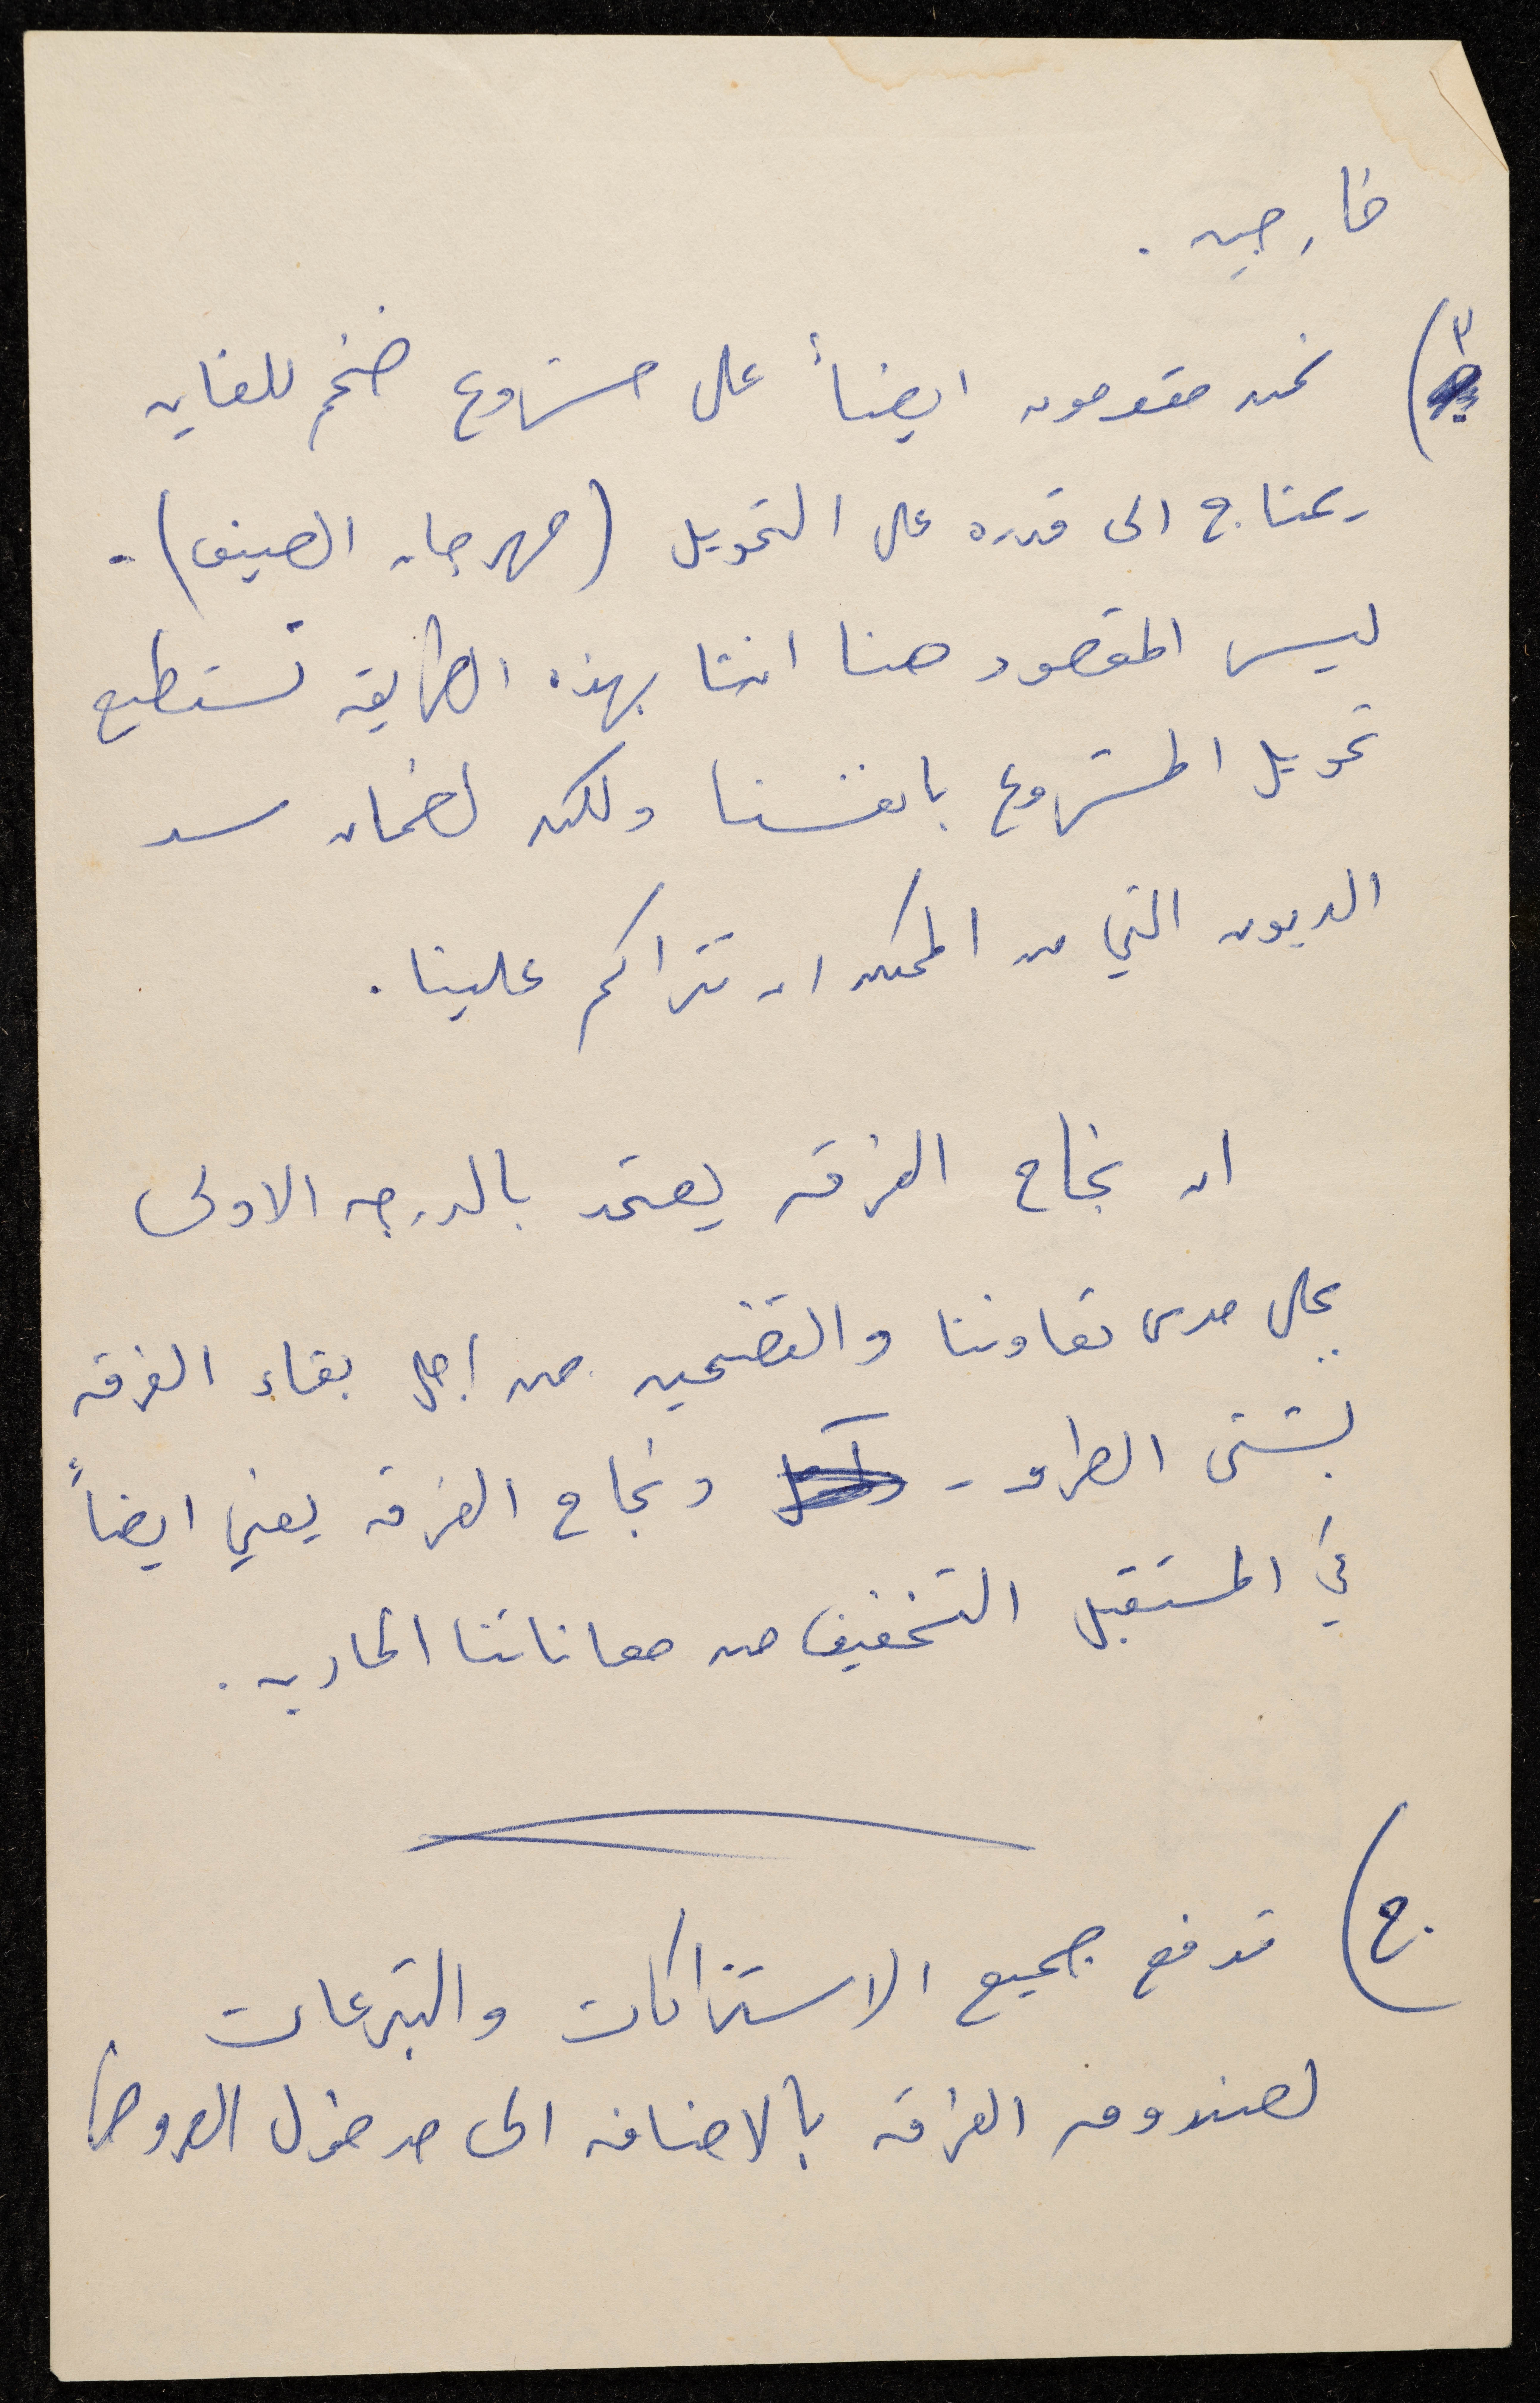 خارجيه .
٢) نحن مقدمون ايضاً على مشروع ضخم للغايه
يحتاج الى قدره على التمويل (مهرجان الصيف) .
ليس المقصود هنا اننا بهذه الطريقه نستطيع
تمويل المشروع بانفسنا ولكن لضمان سد
الديون التي من الممكن ان تتراكم علينا .
ان نجاح الفرقه يعتمد بالدرجه الاولى
على مدى تعاوننا والتضحيه من اجل بقاء الفرقه
بشتى الطرق - ونجاح الفرقه يعني ايضاً
في المستقبل التخفيف من معاناتنا الماديه .
ج) تدفع جميع الاشتراكات والتبرعات
لصندوق الفرقه بالاضافه الى مدخول العروض